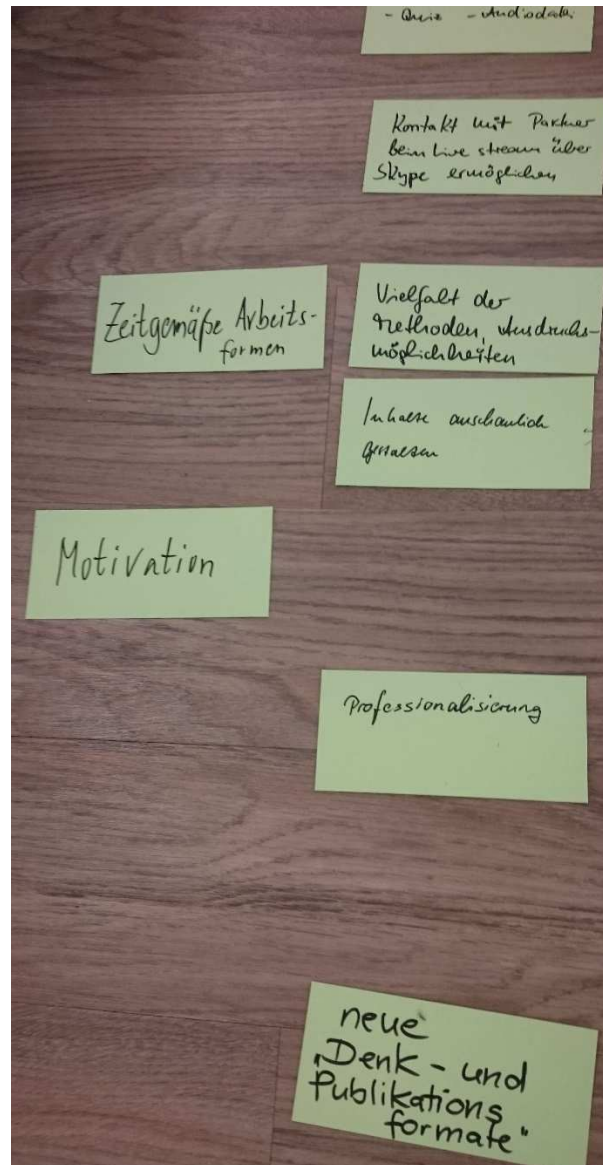 - Quiz - Audiodatei
Kontakt mit Partner
beim Live stream über
Skype ermöglichen
Zeitgemäße Arbeits-
formen
Vielfalt der
Methoden, Ausdrucks-
möglichkeiten
Inhalte anschaulich
gestalten
Motivation
Professionalisierung
neue
„Denk- und
Publikations
formate"